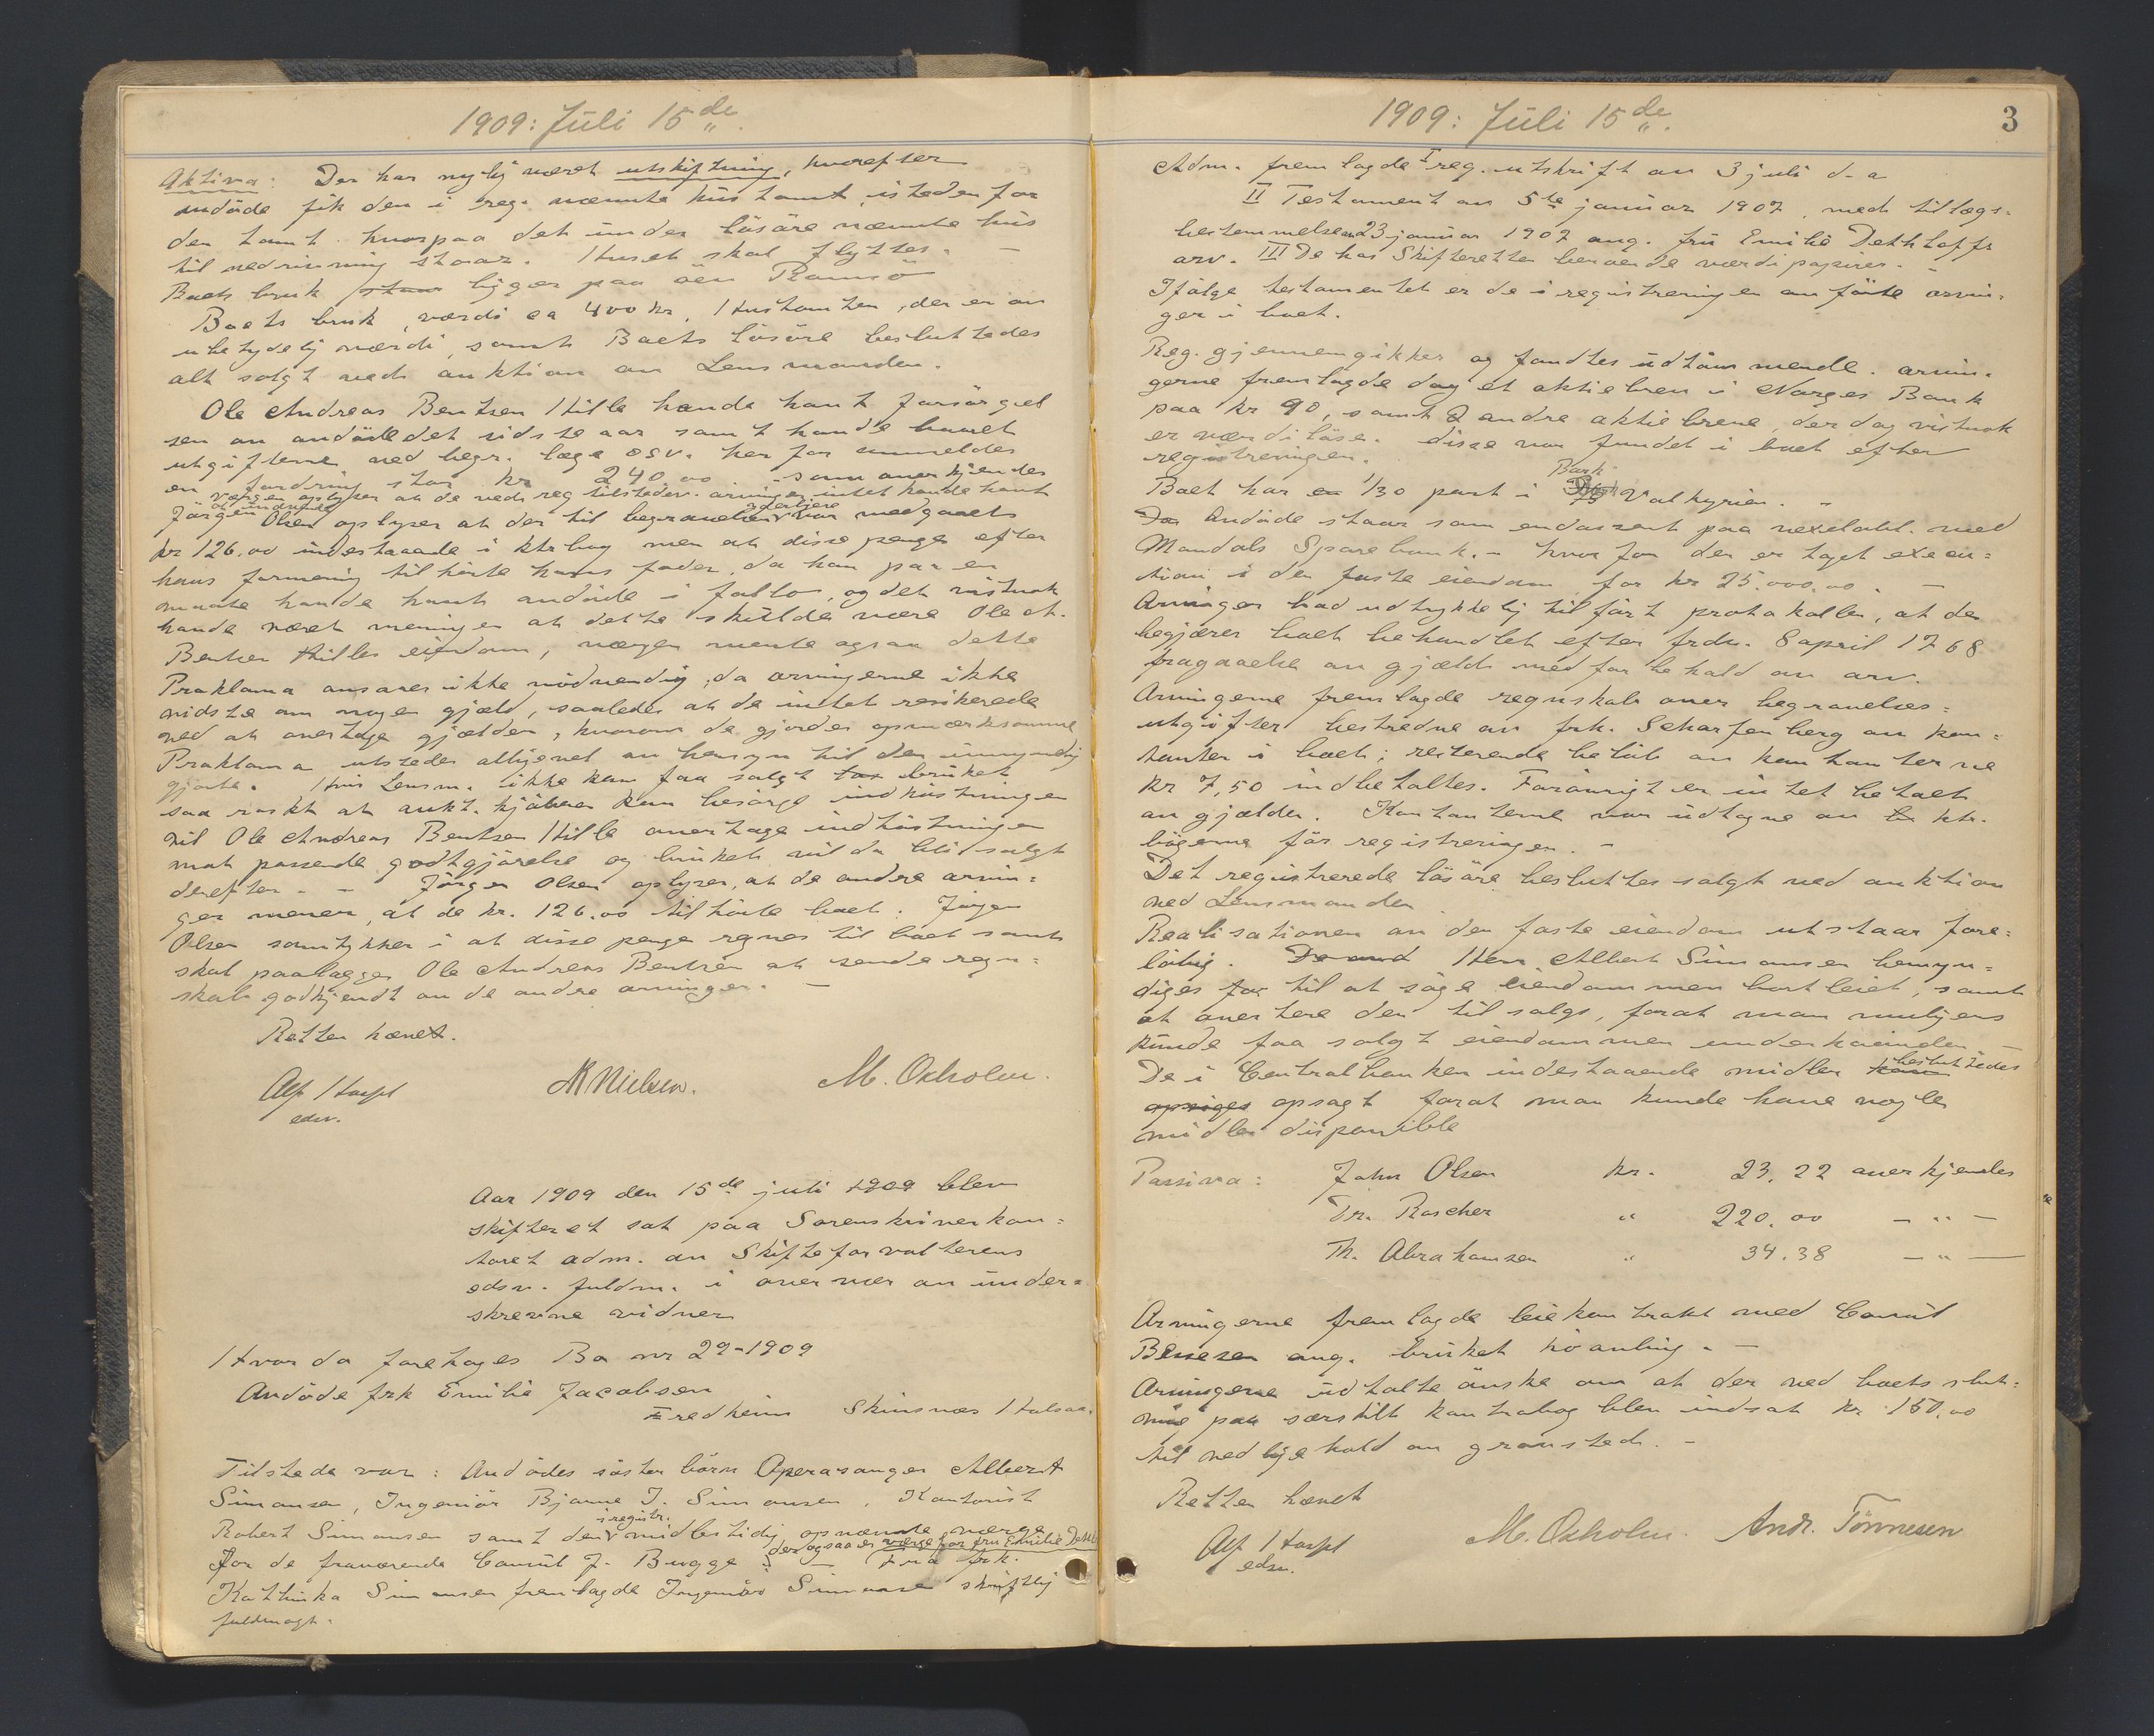 1909: Juli 15de
Aktiva: Der har nylig været utskiftning, hvorefter
avdöde fik den i reg. nævnte hustomt isteden for
den tomt hvorpaa det under lösöre nævnte hus
til nedrivning staar. Huset skal flyttes. —
Boets bruk staar ligger paa öen Ramsö
Boets bruk, værdi ca 400 kr, Hustomten, der er av
ubetydelig værdi, samt Boets lösöre besluttedes
alt solgt ved auktion av Lensmanden.
Ole Andreas Bentsen Hille havde havt forsörgel
sen av avdöde det sidste aar samt havde havt
utgifterne ved begr. læge osv. her for anmeldes
en fordring stor kr 240.00 som anerkjendes
værgen oplyser at de ved reg tilstedev. arvinger intet havde havt
at indvende
Jörgen Olsen oplyser at der til begravelsen yderligere var medgaaet
kr 126.00 indestaaende i ktrbog men at disse penge efter
hans formening tilhörte hans fader, da han paa en
maate havde havt avdöde i forlov, og det vistnok
havde været meningen at dette skulde være Ole A.
Bentsen Hilles eiendom, værgen mente ogsaa dette
Proklama ansaaes ikke nödvendig, da arvingerne ikke
vidste om nogen gjæld, saaledes at de intet resikerede
ved at overtage gjælden, hvorom de gjordes opmærksomme
Proklama utstedes alligevel av hensyn til den umyndig
gjorte. Hvis Lensm. ikke kan faa solgt bruket
saa raskt at aukt. kjöberen kan besörge indhöstningen
vil Ole Andreas Bentsen Hille overtage indhöstningen
mot passende godtgjörelse og bruket vil da bli solgt
derefter. — Jörgen Olsen oplyser, at de andre arvin=
ger mener, at de kr. 126.00 tilhörte boet. Jörgen
Olsen samtykker i at disse penge regnes til boet samt
skal paalægges Ole Andreas Bentsen at sende regn=
skab godkjendt av de andre arvinger. —
Retten hævet.
Alf Harpl
edsv.
N Nielsen.
M. Oxholm.
Aar 1909 den 15de juli 1909 blev
skifteret sat paa Sorenskriverkon=
toret adm. av Skifteforvalterens
edsv. fuldm. i overvær av under=
skrevne vidner
Hvor da foretoges Bo nr 29-1909
Avdöde frk Emilie Jacobsen
Fredheim Skinsnes Halsaa.
Tilstede var: Avdödes sösterbörn Operasanger Albert
Simonsen, Ingeniör Bjarne J. Simonsen, Kontorist
Robert Simonsen samt den i registr. midlertidig opnævnte værge
for de fraværende Consul J. Bugge der ogsaa er værge for fru Emilie Dethl
— Fra frk.
Kathinka Simonsen fremlagde Ingeniör Simonsen skriftlig
fuldmagt.
1909: Juli 15de.
3
Adm. fremlagde I reg. utskrift av 3 juli d. a
II Testament av 5te januar 1907, med tillægs=
bestemmelse av 23 januar 1907 ang. fru Emilie Dethloffs
arv. III De hos Skifteretten beroende værdipapirer. —
Ifölge testamentet er de i registreringen anförte arvin=
ger i boet.
Reg. gjennemgikkes og fandtes udtömmende. arvin=
gerne fremlagde dog et aktiebrev i Norges Bank
paa kr 90, samt 2 andre aktiebreve, der dog vistnok
er værdilöse. disse var fundet i boet efter
registreringen.
Boet har en 1/30 part i Bark Valkyrien. —
Da Avdöde staar som endossent paa vexelobl. med
Mandals Sparebank. — hvor for der er taget exeku=
tion i den faste eiendom for kr 25.000.00. —
Arvinger bad udtrykkelig tilfört protokollen, at de
begjærer boet behandlet efter frdn. 8 april 1768
fragaaelse av gjæld med forbehold av arv.
Arvingerne fremlagde regnskab over begravelses=
utgifter bestredne av frk. Scharfenberg av kon=
tanter i boet; resterende belöb av kontanterne
kr 7,50 indbetaltes. Forövrigt er intet betalt
av gjælden. Kontanterne var udtagne av ktr.
bögerne för registreringen. —
Det registrerede lösöre besluttes solgt ved auktion
ved Lensmanden
Realisationen av den faste eiendom utstaar fore=
löbig. Herr Albert Simonsen bemyn=
diges for til at söge eiendommen bortleiet, samt
at avertere den til salgs, forat man muligens
kunde faa solgt eiendommen underhaanden. —
De i Centralbanken indestaaende midler besluttedes
opsiges opsagt forat man kunde have nogle
midler disponible
Passiva: John Olsen kr. 23.22 anerkjendes
Dr. Roscher " 220.00 — " —
Th. Abrahamsen " 34.38 — " —
Arvingerne fremlagde leiekontrakt med Consul
Benesen ang. bruket höavling. —
Arvingerne udtalte önske om at der ved boets slut=
ning paa særskilt kontrabog blev indsat kr 150.00
til vedligehold av gravsted. —
Retten hævet
Alf Harpl
edsv.
M. Oxholm.
Andr. Tönnesen